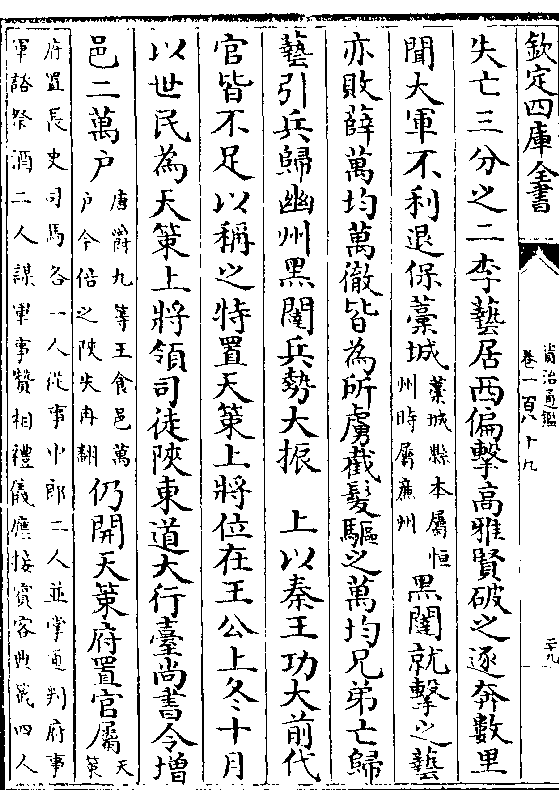 欽定四庫全書
資治通鑑
卷一百八十九
二十九
失亡三分之二李藝居西偏擊高雅賢破之逐奔數里
聞大軍不利退保藁城藁城縣本屬恒州時屬亷州黑闥就擊之藝
亦敗薛萬均萬徹皆為所虜截髮驅之萬均兄弟亡歸
藝引兵歸幽州黑闥兵勢大振　上以秦王功大前代
官皆不足以稱之特置天策上將位在王公上冬十月
以世民為天策上將領司徒陜東道大行臺尚書令增
邑二萬户唐爵九等王食邑萬户今倍之陜失冉翻仍開天策府置官屬天策
府置長史司馬各一人從事中郎二人並掌通判府事
軍諮祭酒二人謀軍事贊相禮儀應接賓客典籤四人